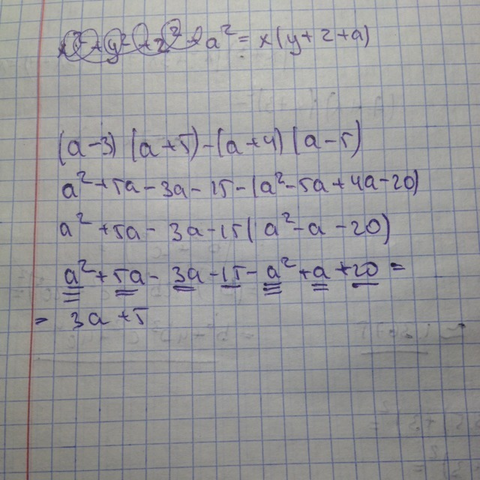 x² + y² + z² + a² = x(y+z+a)
(a-3)(a+5)-(a+4)(a-5)
a²+5a-3a-15-(a²-5a+4a-20)
a²+5a-3a-15(a²-a-20)
a²+5a-3a-15-a²+a+20=
= 3a+5